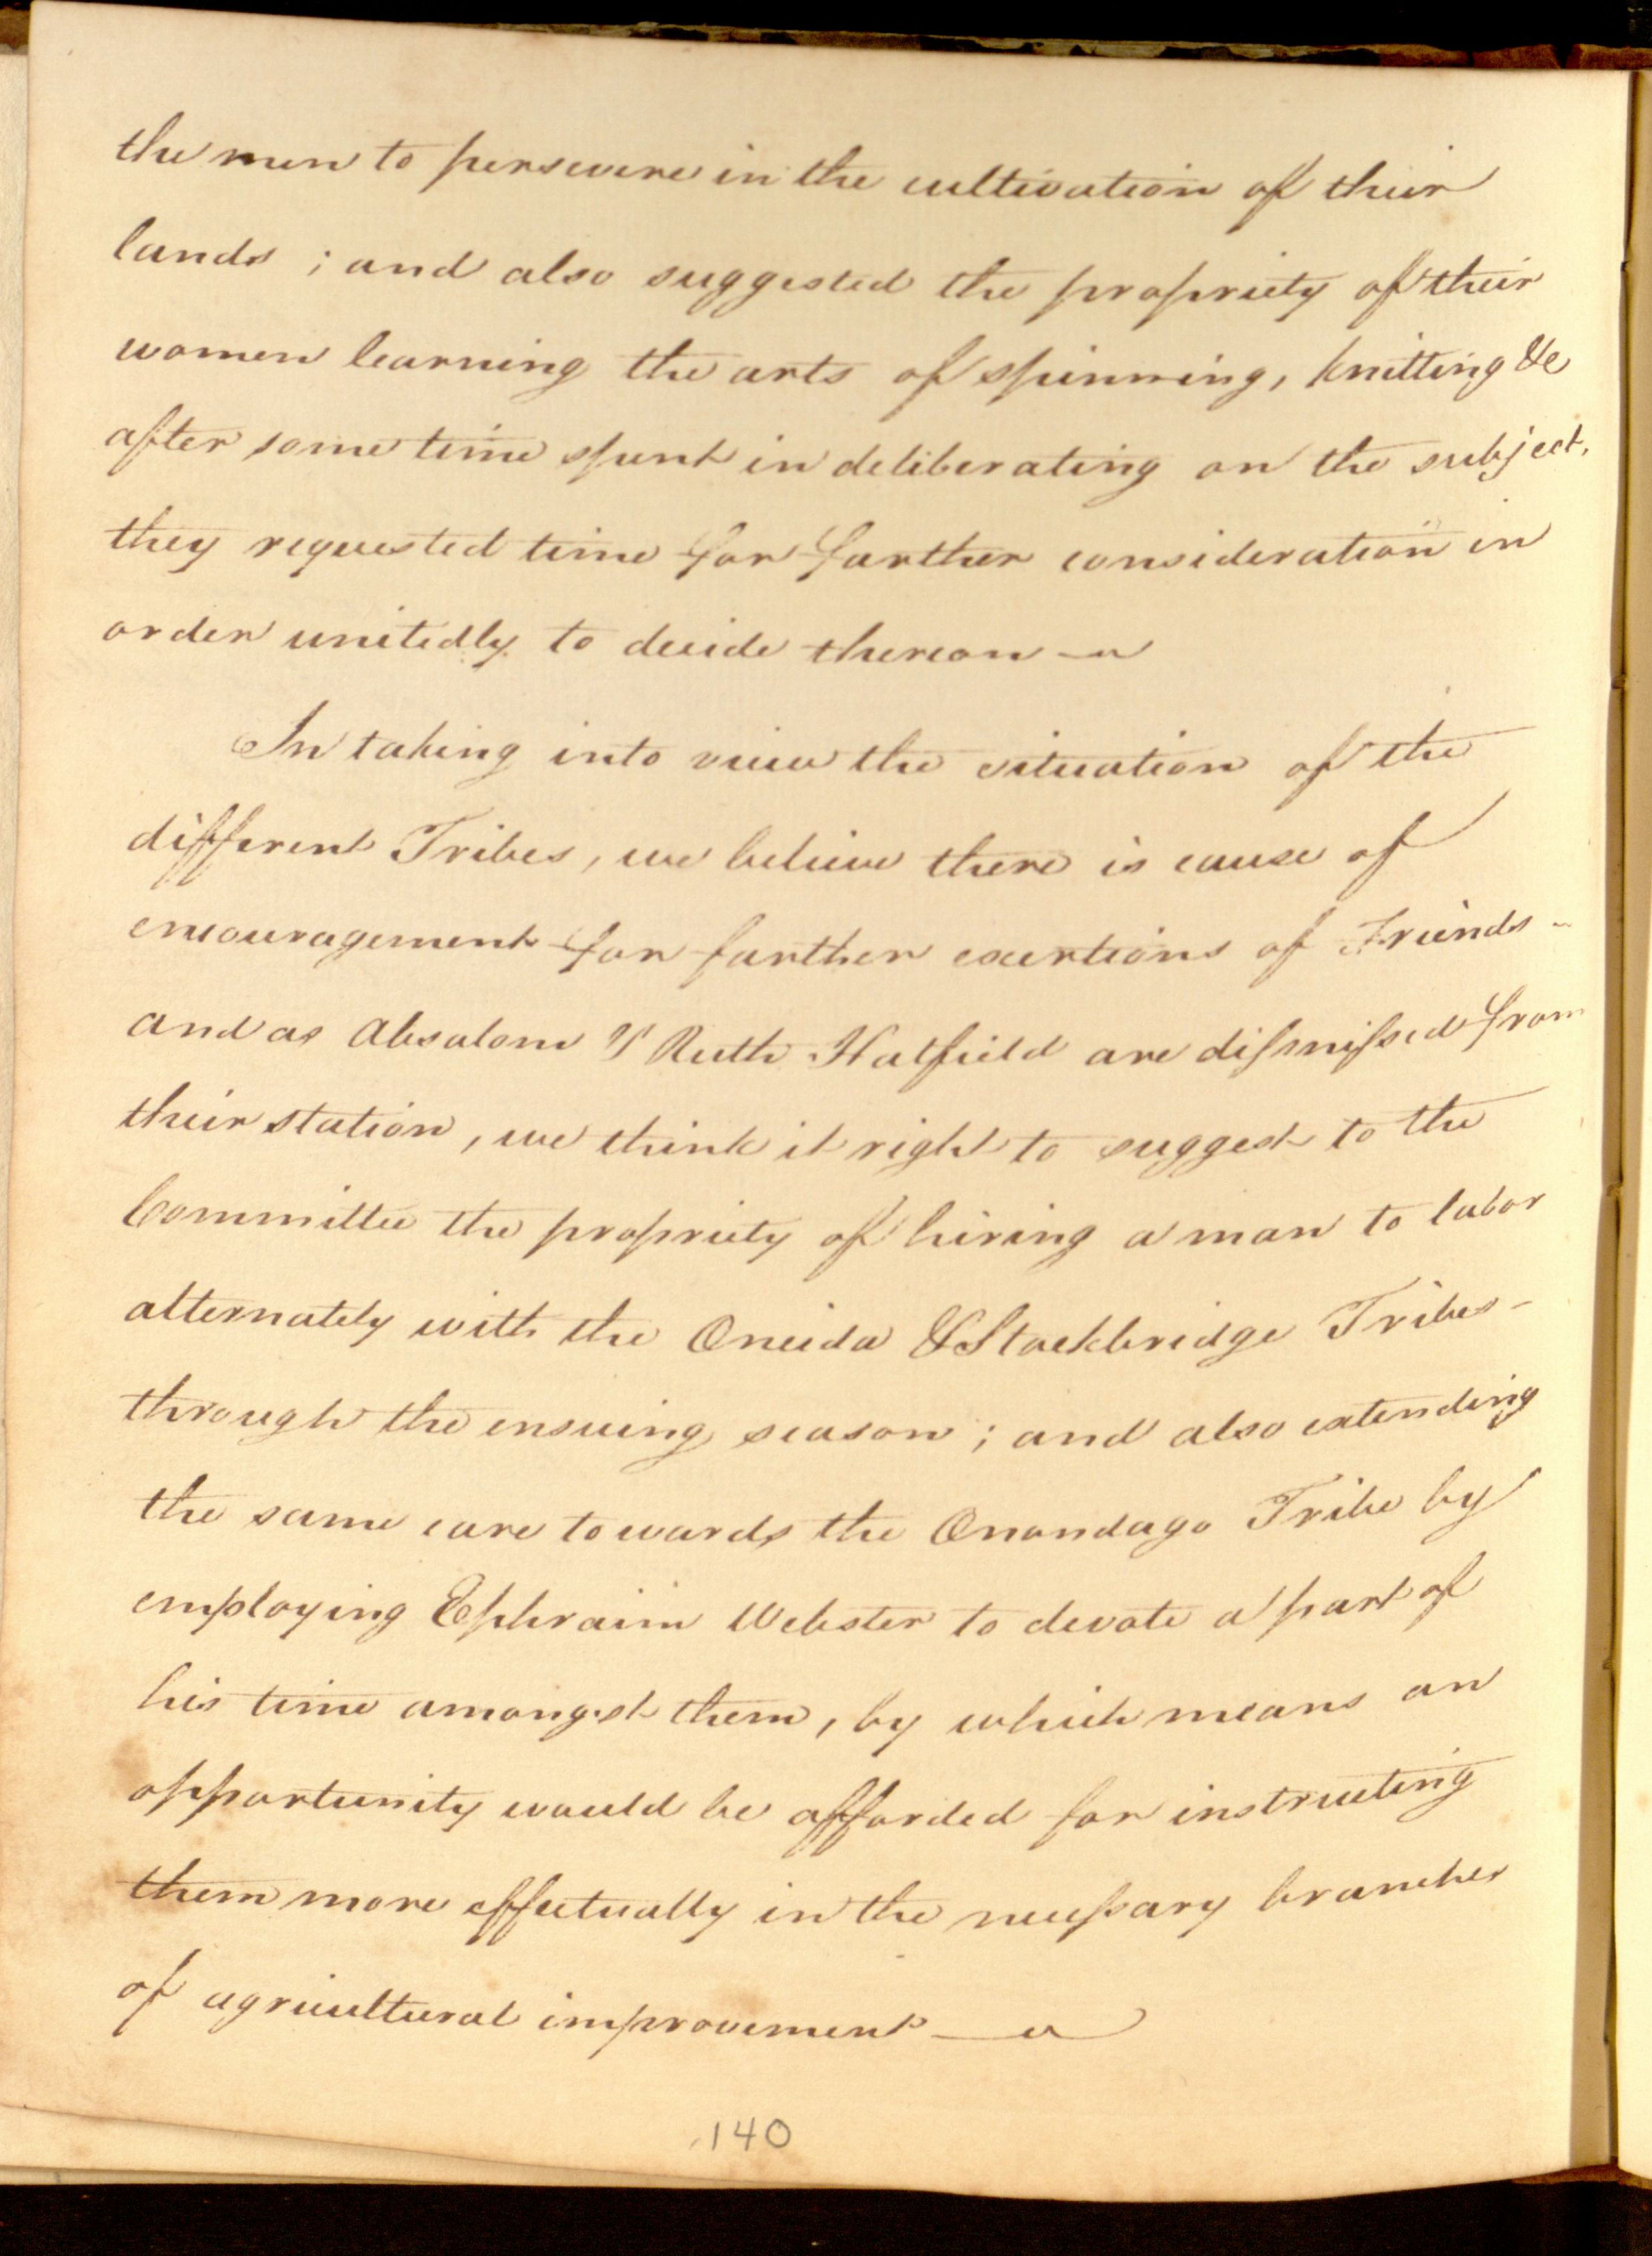 the men to persevere in the cultivation of their
lands ; and also suggested the propriety of their
women learning the arts of spinning, knitting &c
after some time spent in deliberating on the subject,
they requested time for farther consideration in
order unitedly to decide thereon —
In taking into view the situation of the
different Tribes, we believe there is cause of
encouragement for farther exertions of Friends -
and as Absalom & Ruth Hatfield are dismissed from
their station, we think it right to suggest to the
Committee the propriety of hiring a man to labor
alternately with the Oneida & Stockbridge Tribes -
through the ensuing season ; and also extending
the same care towards the Onondago Tribe by
employing Ephraim Webster to devote a part of
his time amongst them, by which means an
opportunity would be afforded for instructing
them more effectually in the necessary branches
of agricultural improvement —
140